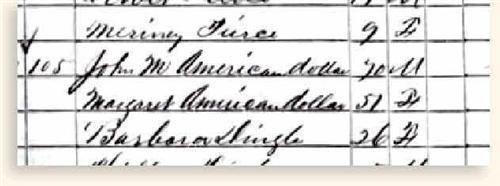 Meriney Pierce 9 F
105 John M American dollar 70 M
Margaret American dollar 51 F
Barbara Dingle 26 F